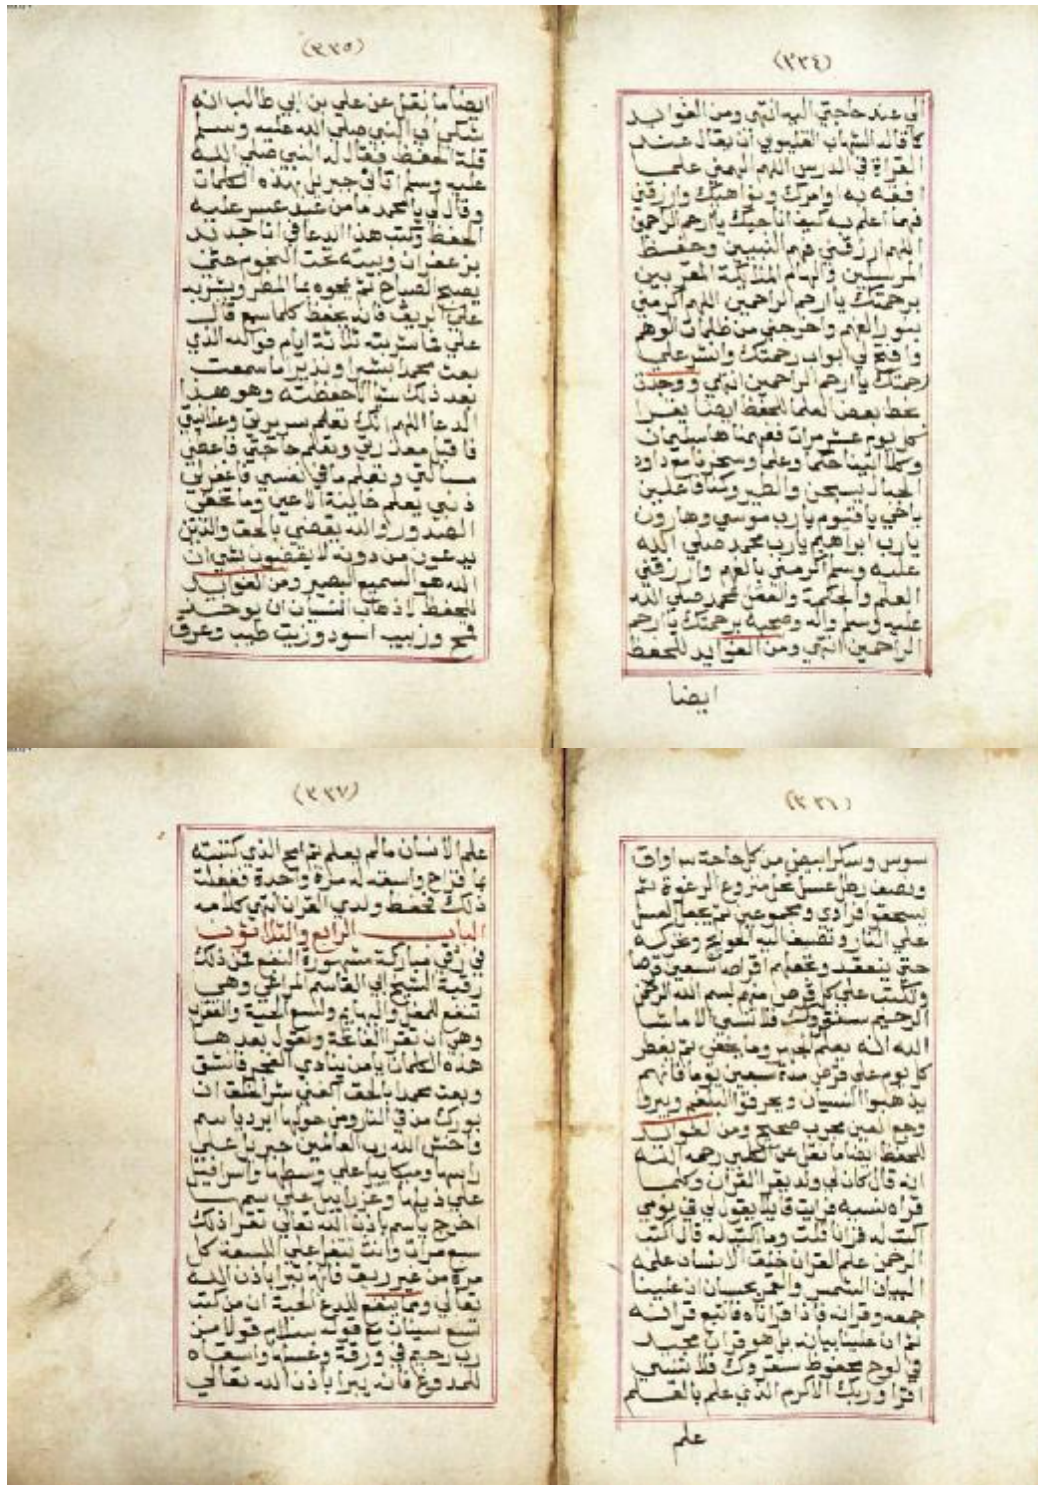 (٣٣٤)
الي عند حاجتي اليه انتهي ومن الفوايد
كما قاله الشهاب القليوبي ان يقال عند
القراة في الدرس اللهم الهمني علما
افقه به اوامرك ونواهيك وارزقني
فهما اعلم به كيف اناجيك ياارحم الراحمين
اللهم ارزقني فهم النبيين وحفظ
المرسلين والهام الملايكة المقربين
برحمتك ياارحم الراحمين اللهم اكرمني
بنور الفهم واخرجني من ظلمات الوهم
وافتح لي ابواب رحمتك وانشر علي
رحمتك ياارحم الراحمين انتهي ووجدت
بخط بعض العلما للحفظ ايضا يقرا
كل يوم عشر مرات ففهمناها سليمان
وكلا اتينا حكما وعلما وسخرنا مع داود
الجبال يسبحن والطير وكنا فاعلين
ياحي ياقيوم يارب موسي وهارون
يارب ابراهيم يارب محمد صلي الله
عليه وسلم اكرمني بالفهم وارزقني
العلم والحكمة والعقل بمحمد صلي الله
عليه وسلم واله وصحبه برحمتك ياارحم
الراحمين انتهي ومن الفوايد للحفظ
ايضا
(٣٣٥)
ايضا ما نقل عن علي بن ابي طالب انه
شكي الي النبي صلي الله عليه وسلم
قلة الحفظ فقال له النبي صلي الله
عليه وسلم اتاني جبريل بهذه الكلمات
وقال لي يامحمد ما من عبد عسر عليه
الحفظ وكتب هذا الدعا في انا جديد
بزعفران وبيته تحت النجوم حتي
يصبح الصباح ثم يمحوه بما المطر ويشربه
علي الريق فانه يحفظ كلما سمع قال
علي فاشربته ثلاثة ايام فوالله الذي
بعث محمدا بشيرا ونذيرا ما سمعت
بعد ذلك شيا الا حفظته وهو هذا
الدعا اللهم انك تعلم سريرتي وعلانيتي
فاقبل معذرتي وتعلم حاجتي فاعطني
مسالتي وتعلم ما في نفسي فاغفرلي
ذنبي يعلم خاينة الاعين وما تخفي
الصدور والله يقضي بالحق والذين
يدعون من دونه لا يقضون بشي ان
الله هو السميع البصير ومن الفوايد
للحفظ لاذهاب النسيان ان يوخذ
ملح وزبيب اسود وزيت طيب وعرق
(٣٣٦)
سوس وسكر ابيض من كل حاجة اواق
ونصف رطل عسل نحل منزوع الرغوة ثم
يسحقوا فرادي ومجموعين ثم يجعل العسل
علي النار وتضيف اليه الحوايج وتحركه
حتي ينعقد وتجعلهم اقراص سبعين قرصا
وتكتب علي كل قرص منهم بسم الله الرحمن
الرحيم سنقروك فلا تنسي الا ماشا
الله انه يعلم الجهر وما يخفي ثم يفطر
كل يوم علي قرص مدة سبعين يوما فانهم
يذهبوا النسيان ويحرقوا البلغم ويبروا
وجع العين مجرب صحيح ومن الفوايد
للحفظ ايضا ما نقل عن رحمه الله
انه قال كان لي ولد يقرا القران وكلما
قراه نسيه فرايت قايلا يقول لي في نومي
اكتب له قرانا قلت وما اكتب له قال اكتب
الرحمن علم القران خلق الانسان علمه
البيان الشمس والقمر بحسبان ان علينا
جمعه وقرانه فاذا قراناه فاتبع قرانه
ثم ان علينا بيانه بل هو قران مجيد
في لوح محفوظ سنقروك فلا تنسي
اقرا وربك الاكرم الذي علم بالقلم
علم
(٣٣٧)
علم الانسان مالم يعلم ثم امح الذي كتبته
بما قراح واسقه له مرة واحدة ففعلت
ذلك فحفظ ولدي القران انتهي كلامه
الباب الرابع والثلاثون
في رقي مباركة مشهورة النفع فمن ذلك
رقية الشيخ ابي القاسم المراغي وهي
تنفع للمغل والبهايم ولسع الحية والعقرب
وهي ان تقرا الفاتحة وتقول بعدها
هذه الكلمات يامن ينادي الفجر فانشق
وبعث محمدا بالحق اكفني شر الخلق ان
بورك من في النار ومن حولها ابرد ياسم
واخش الله رب العالمين جبريل علي
راسها وميكاييل علي وسطها واسرافيل
علي ذيلها وعزراييل علي سمها
اخرج ياسم باذن الله تعالي تقرا ذلك
سبع مرات وانت تتفل علي اللسعة كل
مرة من غير ريق فانها تبرا باذن الله
تعالي ومما ينفع للدغ الحية ان من كتب
تسع سينات مع قوله سلام قولا من
رب رحيم في ورقة وغسله واسقاه
للملدوغ فانه يبرا باذن الله تعالي